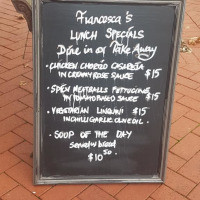 Francesca's
LUNCH SPECIALS
Dine in or Take Away
• CHICKEN CHORIZO CASARECIA
IN CREAMY ROSE SAUCE $15
• SPEN MEATBALLS FETTUCCINE
IN TOMATO BASED SAUCE $15
• VEGETARIAN LINGUINI $15
IN CHILLI GARLIC OLIVE OIL.
• SOUP OF THE DAY
served w bread
$10.50.